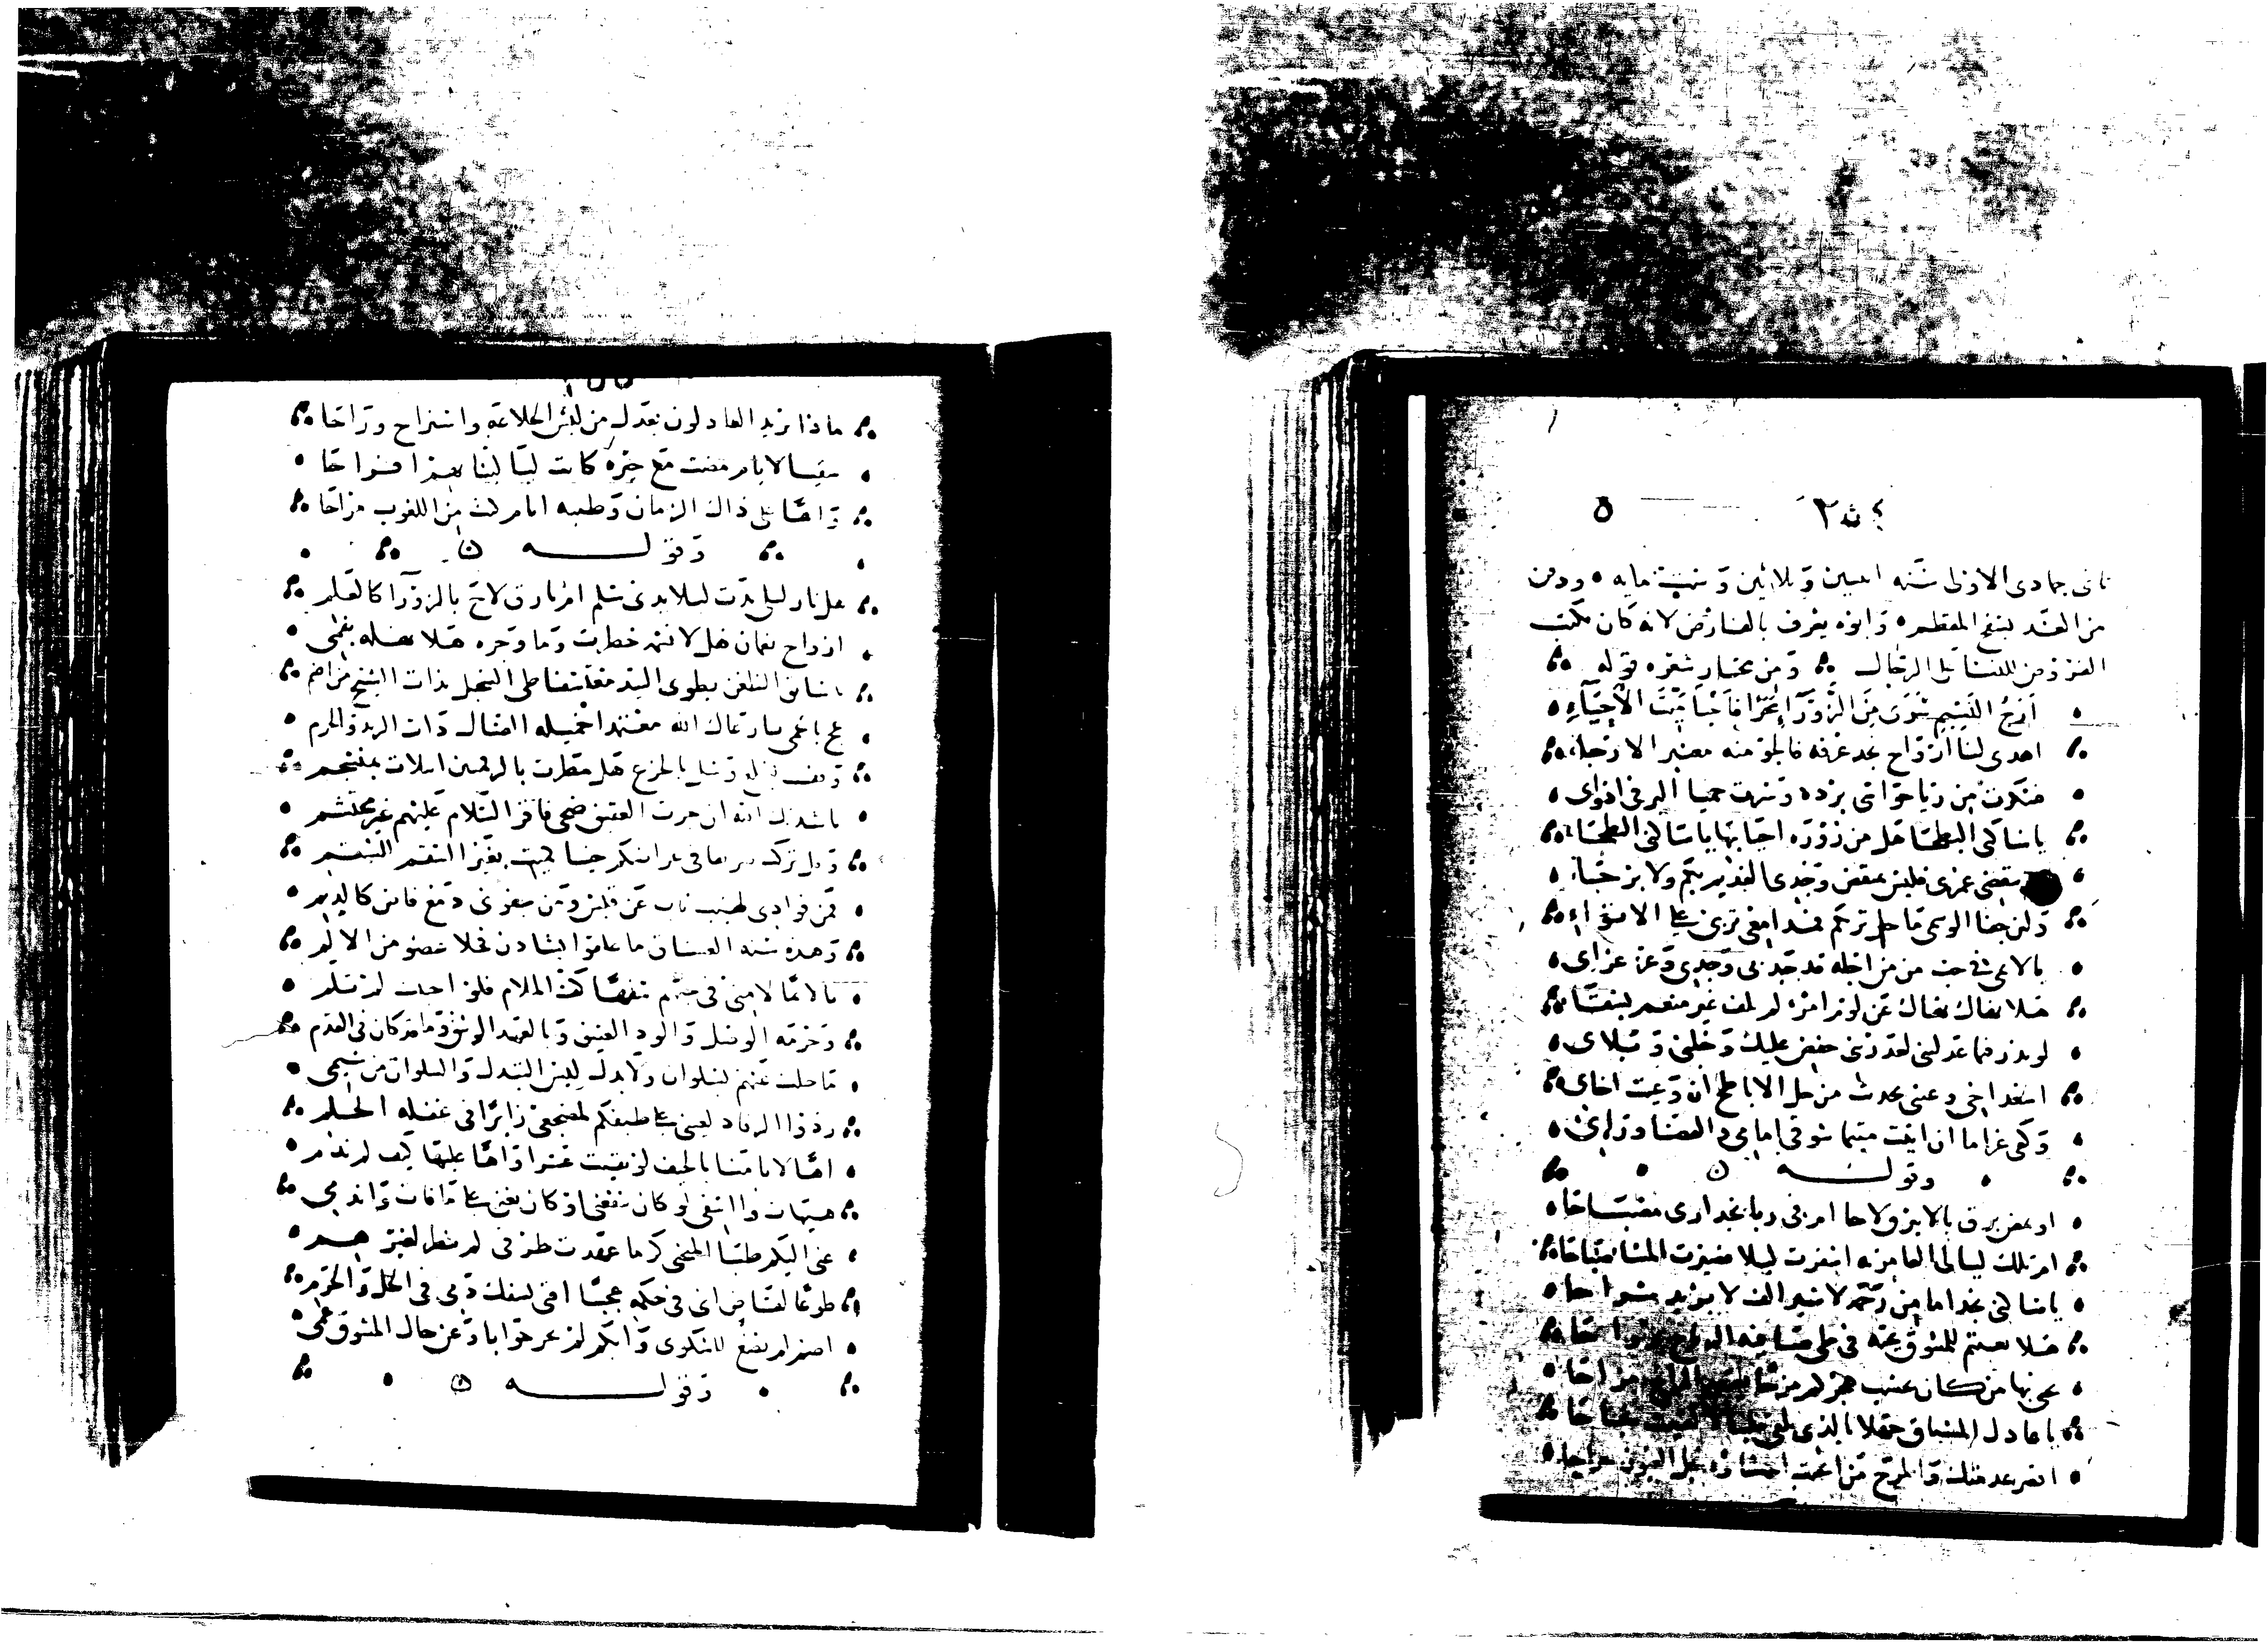 ثاني جمادى الاولى سنة اثنين وثلاثين وستمايه ودفن
من الغد بسفح المقطم وابوه يعرف بالفارض لانه كان يكتب
الفروض للنسا على الرجال ومن مختار شعره قوله
ارج النسيم سرى من الزورا سحرا فاحيا ميت الاحياء
اهدى لنا ارواح نجد عرفه فالجو منه معنبر الارجاء
فسكرت من ريا حواشي برده وسرت حميا البر في ادواى
يا ساكني البطحا هل من عوده احيا بها يا ساكني البطحاء
ان ينقضي صبري فليس بمنقض وجدي القديم بكم ولا برحاء
ولين جفا الوسمي ماحل تربكم فمدامعي تربي على الانواء
يا لايمي في حب من من اجله قد جد بي وجدي وعز عزاى
هلا نهاك نهاك عن لوم امرء لم يلف غير منعم بشقاء
لو تدر فيما عذلتني لعذرتني خفض عليك وخلني وبلاى
اسعد اخي وغنني بحديث من حل الاباطح ان رعيت اخاى
وكفى غراما ان ابيت متيما شوقي امامي والقضا وراى
وقوله
اوميض برق بالابيرق لاحا ام في ربا نجد ارى مصباحا
ام تلك ليلى العامريه اسفرت ليلا فصيرت المسا صباحا
يا ساكني نجد اما من رحمه لاسير الف لا يريد سراحا
هلا بعثتم للمشوق تحيه في طي صافيه الرياح رواحا
يحيى بها من كان يحسب هجركم مزحا
يا عاذل المشتاق جهلا بالذي يلقى مليا
اقصر عدمتك واطرح من اثخنت احشاه النجل العيون جراحا
ماذا يريد العاذلون بعذل من لبس الخلاعه واستراح وراحا
سقيا لايام مضت مع جيره كانت ليالينا بهم افراحا
واها على ذاك الزمان وطيبه ايام كنت من اللغوب مراحا
وقوله
هل نار ليلى بدت ليلا بذي سلم ام بارق لاح بالزورا كالعلم
ارواح نعمان هلا نسمه سحرا وما وجره هلا نهله بفمي
يا سايق الظعن يطوي البيد معتسفا طي السجل بذات الشيح من اضم
عج بالحمى يا رعاك الله معتمدا خميله الضال ذات الرند والخزم
وقف بسلع وسل بالجزع هل مطرت بالرقمتين اثيلات بمنسجم
ناشدتك الله ان جزت العقيق ضحى فاقر السلام عليهم غير محتشم
وقل تركت صريعا في دياركم حيا كميت يعير السقم للسقم
فمن فوادي لهيب ناب عن قبس ومن جفوني دمع فاض كالديم
وهذه سنه العشاق ما علقوا بشادن فخلا عضو من الالم
يا لايما لامني في حبهم سفها كف الملام فلو احببت لم تلم
وحرمه الوصل والود العتيق وبالعهد الوثيق وما قد كان في القدم
ما حلت عنهم بسلوان ولا بدل ليس التبدل والسلوان من شيمي
ردوا الرقاد لعيني عل طيفكم بمضجعي زايرا في غفله الحلم
اها لايامنا بالخيف لو بقيت عشرا واها عليها كيف لم تدم
هيهات وا اسفى لو كان ينفعني او كان يغني على ما فات واندمي
عني اليكم ظبا المنحنى كرما عهدت طرفي لم ينظر لغيرهم
طوعا لقاض اتى في حكمه عجبا افتى بسفك دمي في الحل والحرم
اصم لم يصغ للشكوى وابكم لم يحر جوابا وعن حال المشوق عمي
وقوله